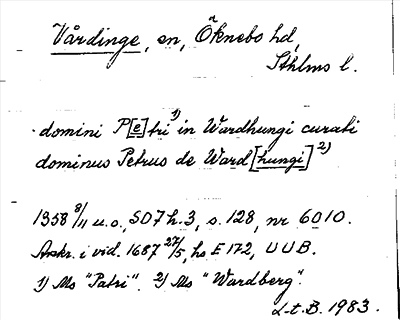 Vårdinge, sn, Öknebo hd,
Sthlms l.
domini P[e]tri 1) in Wardhungi curati
dominus Petrus de Ward[hungi] 2)
1358 8/11 u.o., SD 7 h. 3, s. 128, nr 6010.
Avskr. i vid. 1687 27/5, hs E 172, UUB.
1) Ms "Patri". 2) Ms "Wardberg".
L-t. B. 1983.